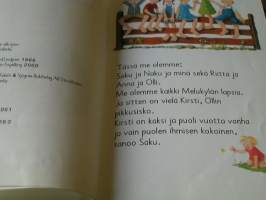 Tässä me olemme:
Saku ja Naku ja minä sekä Riitta ja
Anna ja Olli.
Me olemme kaikki Melukylän lapsia.
Ja sitten on vielä Kirsti, Ollin
pikkusisko.
Kirsti on kaksi ja puoli vuotta vanha
ja vain puolen ihmisen kokoinen,
sanoo Saku.